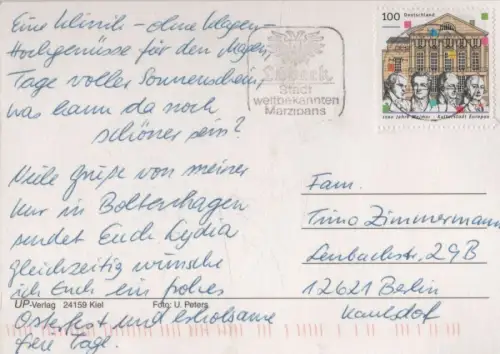 Eine Klinik – ohne Klagen –
Hochgenüsse für den Magen,
Tage voller Sonnenschein,
was kann da noch
schöner sein?
Viele Grüße von meiner
Kur in Boltenhagen
sendet Euch Lydia
gleichzeitig wünsche
ich Euch ein frohes
Osterfest und erholsame
freie Tage.
UP-Verlag 24159 Kiel Foto: U. Peters
Lübeck
Stadt
weltbekannten
Marzipans
100 Deutschland
1100 Jahre Weimar - Kulturstadt Europas
Fam.
Tino Zimmermann
Lenbachstr. 29B
12621 Berlin
Kaulsdorf